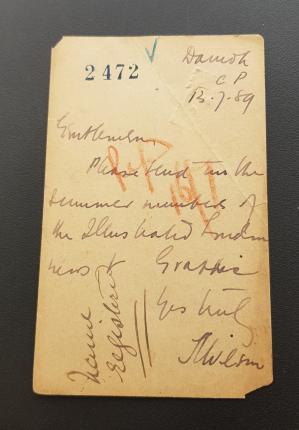 2472
C P
13.7.89
Gentlemen
Please send me the
summer numbers of
the Illustrated London
news & Graphic
Yrs truly
Wilson
Name
Registered